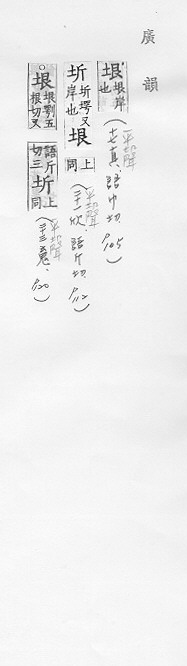 廣韻
垠垠岸也(十七真.語巾切 P.105)
平聲
圻圻堮又岸也垠同上(二十一欣.語斤切 P.112)
平聲
○垠垠五根切又語斤切三圻同上(二十三魂. P.120)
平聲